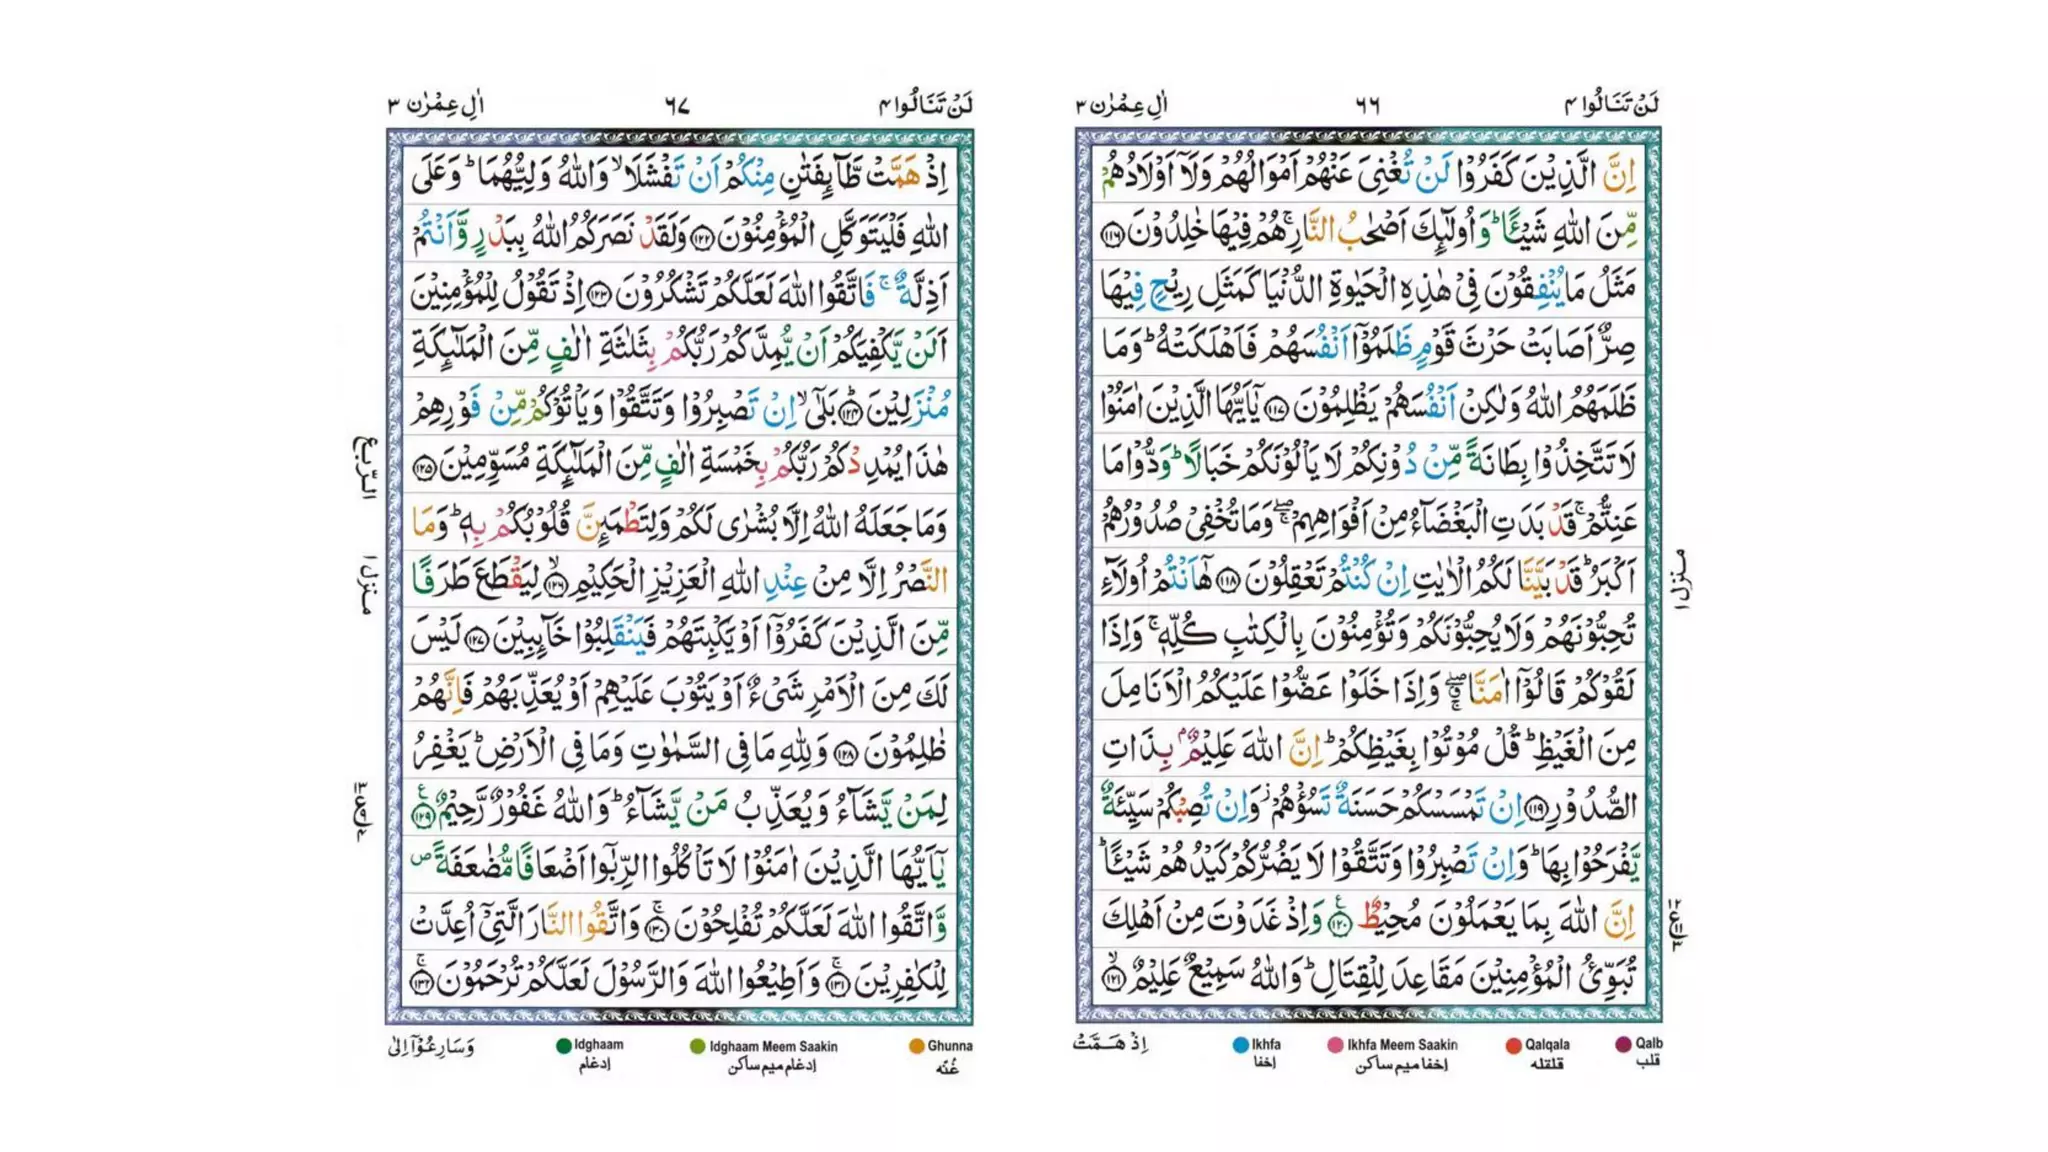 لَنْ تَنَالُوا ۴
۶۶
اٰلِ عِمْرٰن ۳
اِنَّ الَّذِيْنَ كَفَرُوْا لَنْ تُغْنِيَ عَنْهُمْ اَمْوَالُهُمْ وَلَاۤ اَوْلَادُهُمْ
مِّنَ اللّٰهِ شَيْـًٔا ؕ وَاُولٰٓئِكَ اَصْحٰبُ النَّارِ ۚ هُمْ فِيْهَا خٰلِدُوْنَ ﴿۱۱۶﴾
مَثَلُ مَا يُنْفِقُوْنَ فِيْ هٰذِهِ الْحَيٰوةِ الدُّنْيَا كَمَثَلِ رِيْحٍ فِيْهَا
صِرٌّ اَصَابَتْ حَرْثَ قَوْمٍ ظَلَمُوْۤا اَنْفُسَهُمْ فَاَهْلَكَتْهُ ؕ وَمَا
ظَلَمَهُمُ اللّٰهُ وَلٰكِنْ اَنْفُسَهُمْ يَظْلِمُوْنَ ﴿۱۱۷﴾ يٰۤاَيُّهَا الَّذِيْنَ اٰمَنُوْا
لَا تَتَّخِذُوْا بِطَانَةً مِّنْ دُوْنِكُمْ لَا يَاْلُوْنَكُمْ خَبَالًا ؕ وَدُّوْا مَا
عَنِتُّمْ ۚ قَدْ بَدَتِ الْبَغْضَآءُ مِنْ اَفْوَاهِهِمْ ۖۚ وَمَا تُخْفِيْ صُدُوْرُهُمْ
اَكْبَرُ ؕ قَدْ بَيَّنَّا لَكُمُ الْاٰيٰتِ اِنْ كُنْتُمْ تَعْقِلُوْنَ ﴿۱۱۸﴾ هٰۤاَنْتُمْ اُولَآءِ
تُحِبُّوْنَهُمْ وَلَا يُحِبُّوْنَكُمْ وَتُؤْمِنُوْنَ بِالْكِتٰبِ كُلِّهٖ ۚ وَاِذَا
لَقُوْكُمْ قَالُوْۤا اٰمَنَّا ۖۗ وَاِذَا خَلَوْا عَضُّوْا عَلَيْكُمُ الْاَنَامِلَ
مِنَ الْغَيْظِ ؕ قُلْ مُوْتُوْا بِغَيْظِكُمْ ؕ اِنَّ اللّٰهَ عَلِيْمٌۢ بِذَاتِ
الصُّدُوْرِ ﴿۱۱۹﴾ اِنْ تَمْسَسْكُمْ حَسَنَةٌ تَسُؤْهُمْ ؗ وَاِنْ تُصِبْكُمْ سَيِّئَةٌ
يَّفْرَحُوْا بِهَا ؕ وَاِنْ تَصْبِرُوْا وَتَتَّقُوْا لَا يَضُرُّكُمْ كَيْدُهُمْ شَيْـًٔا ؕ
اِنَّ اللّٰهَ بِمَا يَعْمَلُوْنَ مُحِيْطٌ ﴿۱۲۰﴾ وَاِذْ غَدَوْتَ مِنْ اَهْلِكَ
تُبَوِّئُ الْمُؤْمِنِيْنَ مَقَاعِدَ لِلْقِتَالِ ؕ وَاللّٰهُ سَمِيْعٌ عَلِيْمٌ ﴿۱۲۱﴾
منزل ۱
اِذْ هَمَّتْ
Ikhfa
اخفا
Ikhfa Meem Saakin
اخفا میم ساکن
Qalqala
قلقله
Qalb
قلب
لَنْ تَنَالُوا ۴
۶۷
اٰلِ عِمْرٰن ۳
اِذْ هَمَّتْ طَّآئِفَتٰنِ مِنْكُمْ اَنْ تَفْشَلَا ۙ وَاللّٰهُ وَلِيُّهُمَا ؕ وَعَلَى
اللّٰهِ فَلْيَتَوَكَّلِ الْمُؤْمِنُوْنَ ﴿۱۲۲﴾ وَلَقَدْ نَصَرَكُمُ اللّٰهُ بِبَدْرٍ وَّاَنْتُمْ
اَذِلَّةٌ ۚ فَاتَّقُوا اللّٰهَ لَعَلَّكُمْ تَشْكُرُوْنَ ﴿۱۲۳﴾ اِذْ تَقُوْلُ لِلْمُؤْمِنِيْنَ
اَلَنْ يَّكْفِيَكُمْ اَنْ يُّمِدَّكُمْ رَبُّكُمْ بِثَلٰثَةِ اٰلٰفٍ مِّنَ الْمَلٰٓئِكَةِ
مُنْزَلِيْنَ ﴿۱۲۴﴾ بَلٰٓى ۙ اِنْ تَصْبِرُوْا وَتَتَّقُوْا وَيَاْتُوْكُمْ مِّنْ فَوْرِهِمْ
هٰذَا يُمْدِدْكُمْ رَبُّكُمْ بِخَمْسَةِ اٰلٰفٍ مِّنَ الْمَلٰٓئِكَةِ مُسَوِّمِيْنَ ﴿۱۲۵﴾
وَمَا جَعَلَهُ اللّٰهُ اِلَّا بُشْرٰى لَكُمْ وَلِتَطْمَئِنَّ قُلُوْبُكُمْ بِهٖ ؕ وَمَا
النَّصْرُ اِلَّا مِنْ عِنْدِ اللّٰهِ الْعَزِيْزِ الْحَكِيْمِ ﴿۱۲۶﴾ ۙ لِيَقْطَعَ طَرَفًا
مِّنَ الَّذِيْنَ كَفَرُوْۤا اَوْ يَكْبِتَهُمْ فَيَنْقَلِبُوْا خَآئِبِيْنَ ﴿۱۲۷﴾ لَيْسَ
لَكَ مِنَ الْاَمْرِ شَيْءٌ اَوْ يَتُوْبَ عَلَيْهِمْ اَوْ يُعَذِّبَهُمْ فَاِنَّهُمْ
ظٰلِمُوْنَ ﴿۱۲۸﴾ وَلِلّٰهِ مَا فِي السَّمٰوٰتِ وَمَا فِي الْاَرْضِ ؕ يَغْفِرُ
لِمَنْ يَّشَآءُ وَيُعَذِّبُ مَنْ يَّشَآءُ ؕ وَاللّٰهُ غَفُوْرٌ رَّحِيْمٌ ﴿۱۲۹﴾
يٰۤاَيُّهَا الَّذِيْنَ اٰمَنُوْا لَا تَاْكُلُوا الرِّبٰٓوا اَضْعَافًا مُّضٰعَفَةً ۪
وَّاتَّقُوا اللّٰهَ لَعَلَّكُمْ تُفْلِحُوْنَ ﴿۱۳۰﴾ ۚ وَاتَّقُوا النَّارَ الَّتِيْۤ اُعِدَّتْ
لِلْكٰفِرِيْنَ ﴿۱۳۱﴾ ۚ وَاَطِيْعُوا اللّٰهَ وَالرَّسُوْلَ لَعَلَّكُمْ تُرْحَمُوْنَ ﴿۱۳۲﴾ ۚ
الرُّبع
منزل ۱
وَسَارِعُوْۤا اِلٰى
Idghaam
ادغام
Idghaam Meem Saakin
ادغام میم ساکن
Ghunna
غُنّه